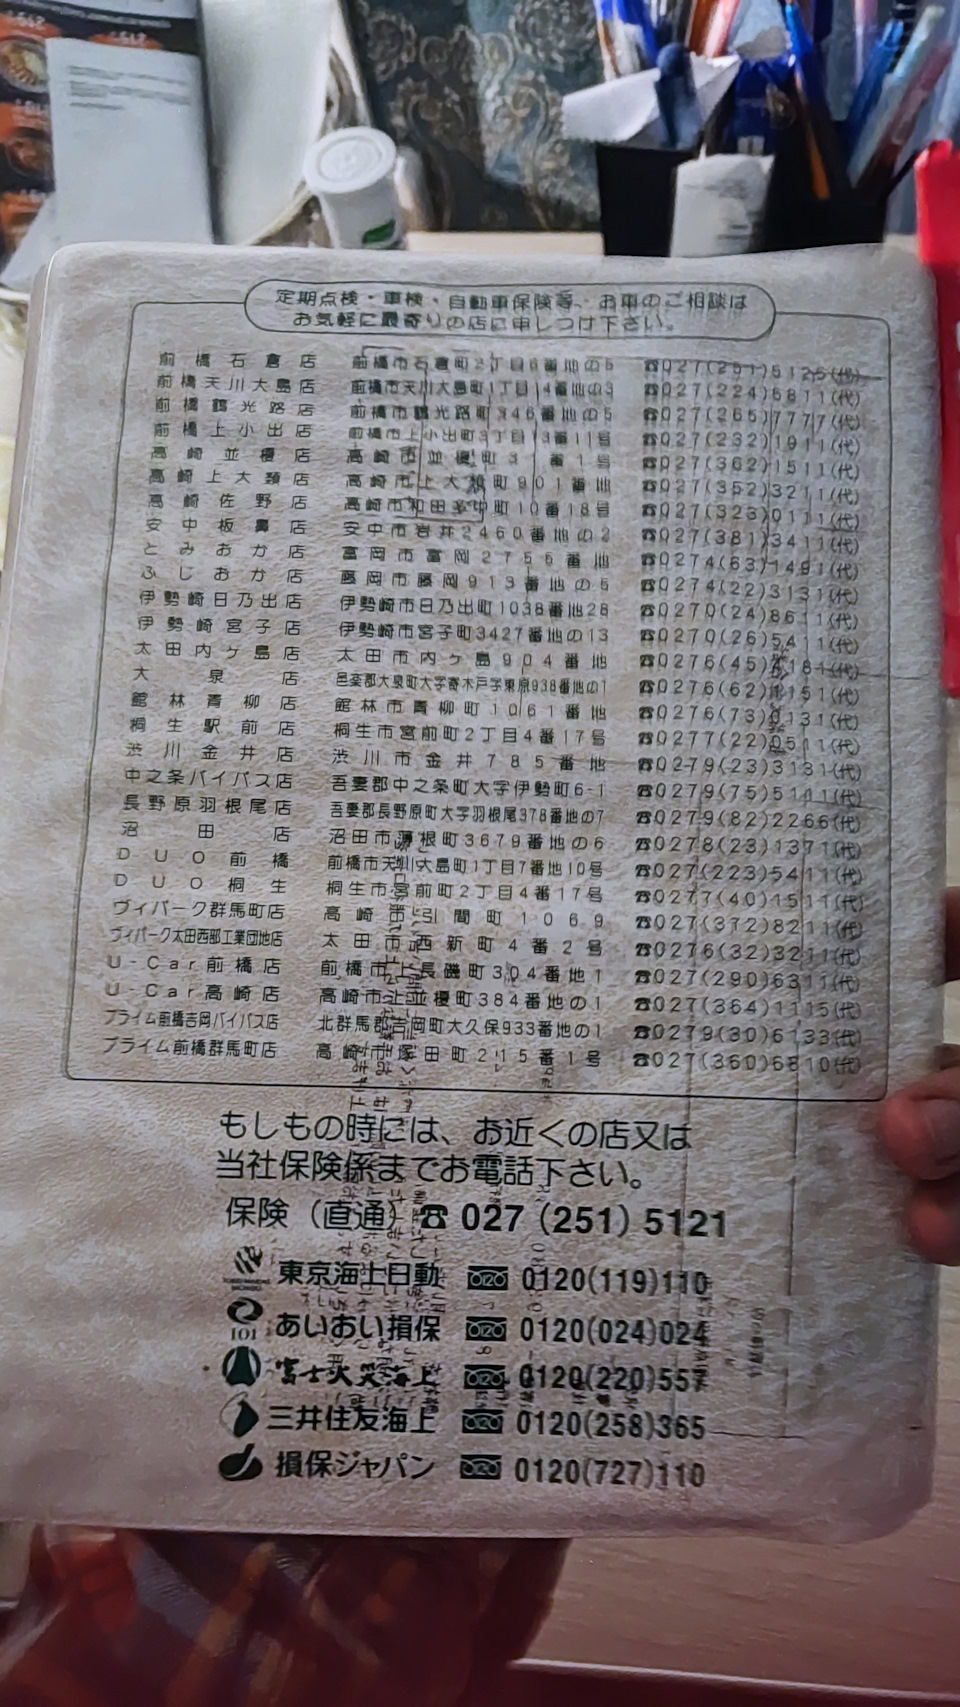 定期点検・車検・自動車保険等、お車のご相談は
お気軽に最寄りの店に申しつけ下さい。
前橋石倉店 前橋市石倉町2丁目6番地の5 ☎027(251)5125(代)
前橋天川大島店 前橋市天川大島町1丁目14番地の3 ☎027(224)6811(代)
前橋鶴光路店 前橋市鶴光路町346番地の5 ☎027(265)7777(代)
前橋上小出店 前橋市上小出町3丁目13番11号 ☎027(232)1911(代)
高崎並榎店 高崎市並榎町3 番1号 ☎027(362)1511(代)
高崎上大類店 高崎市上大類町901番地 ☎027(352)3211(代)
高崎佐野店 高崎市和田多中町10番18号 ☎027(323)0111(代)
安中板鼻店 安中市岩井2460番地の2 ☎027(381)3411(代)
とみおか店 富岡市富岡2755番地 ☎0274(63)1491(代)
ふじおか店 藤岡市藤岡913番地の5 ☎0274(22)3131(代)
伊勢崎日乃出店 伊勢崎市日乃出町1038番地28 ☎0270(24)8611(代)
伊勢崎宮子店 伊勢崎市宮子町3427番地の13 ☎0270(26)5411(代)
太田内ヶ島店 太田市内ヶ島904番地 ☎0276(45)8181(代)
大泉店 邑楽郡大泉町大字寄木戸字東原938番地の1 ☎0276(62)8151(代)
館林青柳店 館林市青柳町1061番地 ☎0276(73)0131(代)
桐生駅前店 桐生市宮前町2丁目4番17号 ☎0277(22)0511(代)
渋川金井店 渋川市金井785番地 ☎0279(23)3131(代)
中之条バイパス店 吾妻郡中之条町大字伊勢町6-1 ☎0279(75)5111(代)
長野原羽根尾店 吾妻郡長野原町大字羽根尾378番地の7 ☎0279(82)2266(代)
沼田店 沼田市薄根町3679番地の6 ☎0278(23)1371(代)
DUO前橋 前橋市天川大島町1丁目7番地10号 ☎027(223)5411(代)
DUO桐生 桐生市宮前町2丁目4番17号 ☎0277(40)1511(代)
ヴィパーク群馬町店 高崎市引間町1069 ☎027(372)8211(代)
ヴィパーク太田西部工業団地店 太田市西新町4番2号 ☎0276(32)3211(代)
U-Car前橋店 前橋市上長磯町304番地1 ☎027(290)6311(代)
U-Car高崎店 高崎市上並榎町384番地の1 ☎027(364)1115(代)
プライム前橋吉岡バイパス店 北群馬郡吉岡町大久保933番地の1 ☎0279(30)6133(代)
プライム前橋群馬町店 高崎市塚田町215番1号 ☎027(360)6810(代)
もしもの時には、お近くの店又は
当社保険係までお電話下さい。
保険（直通）☎027（251）5121
東京海上日動 0120(119)110
101 あいおい損保 0120(024)024
富士火災海上 0120(220)557
三井住友海上 0120(258)365
損保ジャパン 0120(727)110